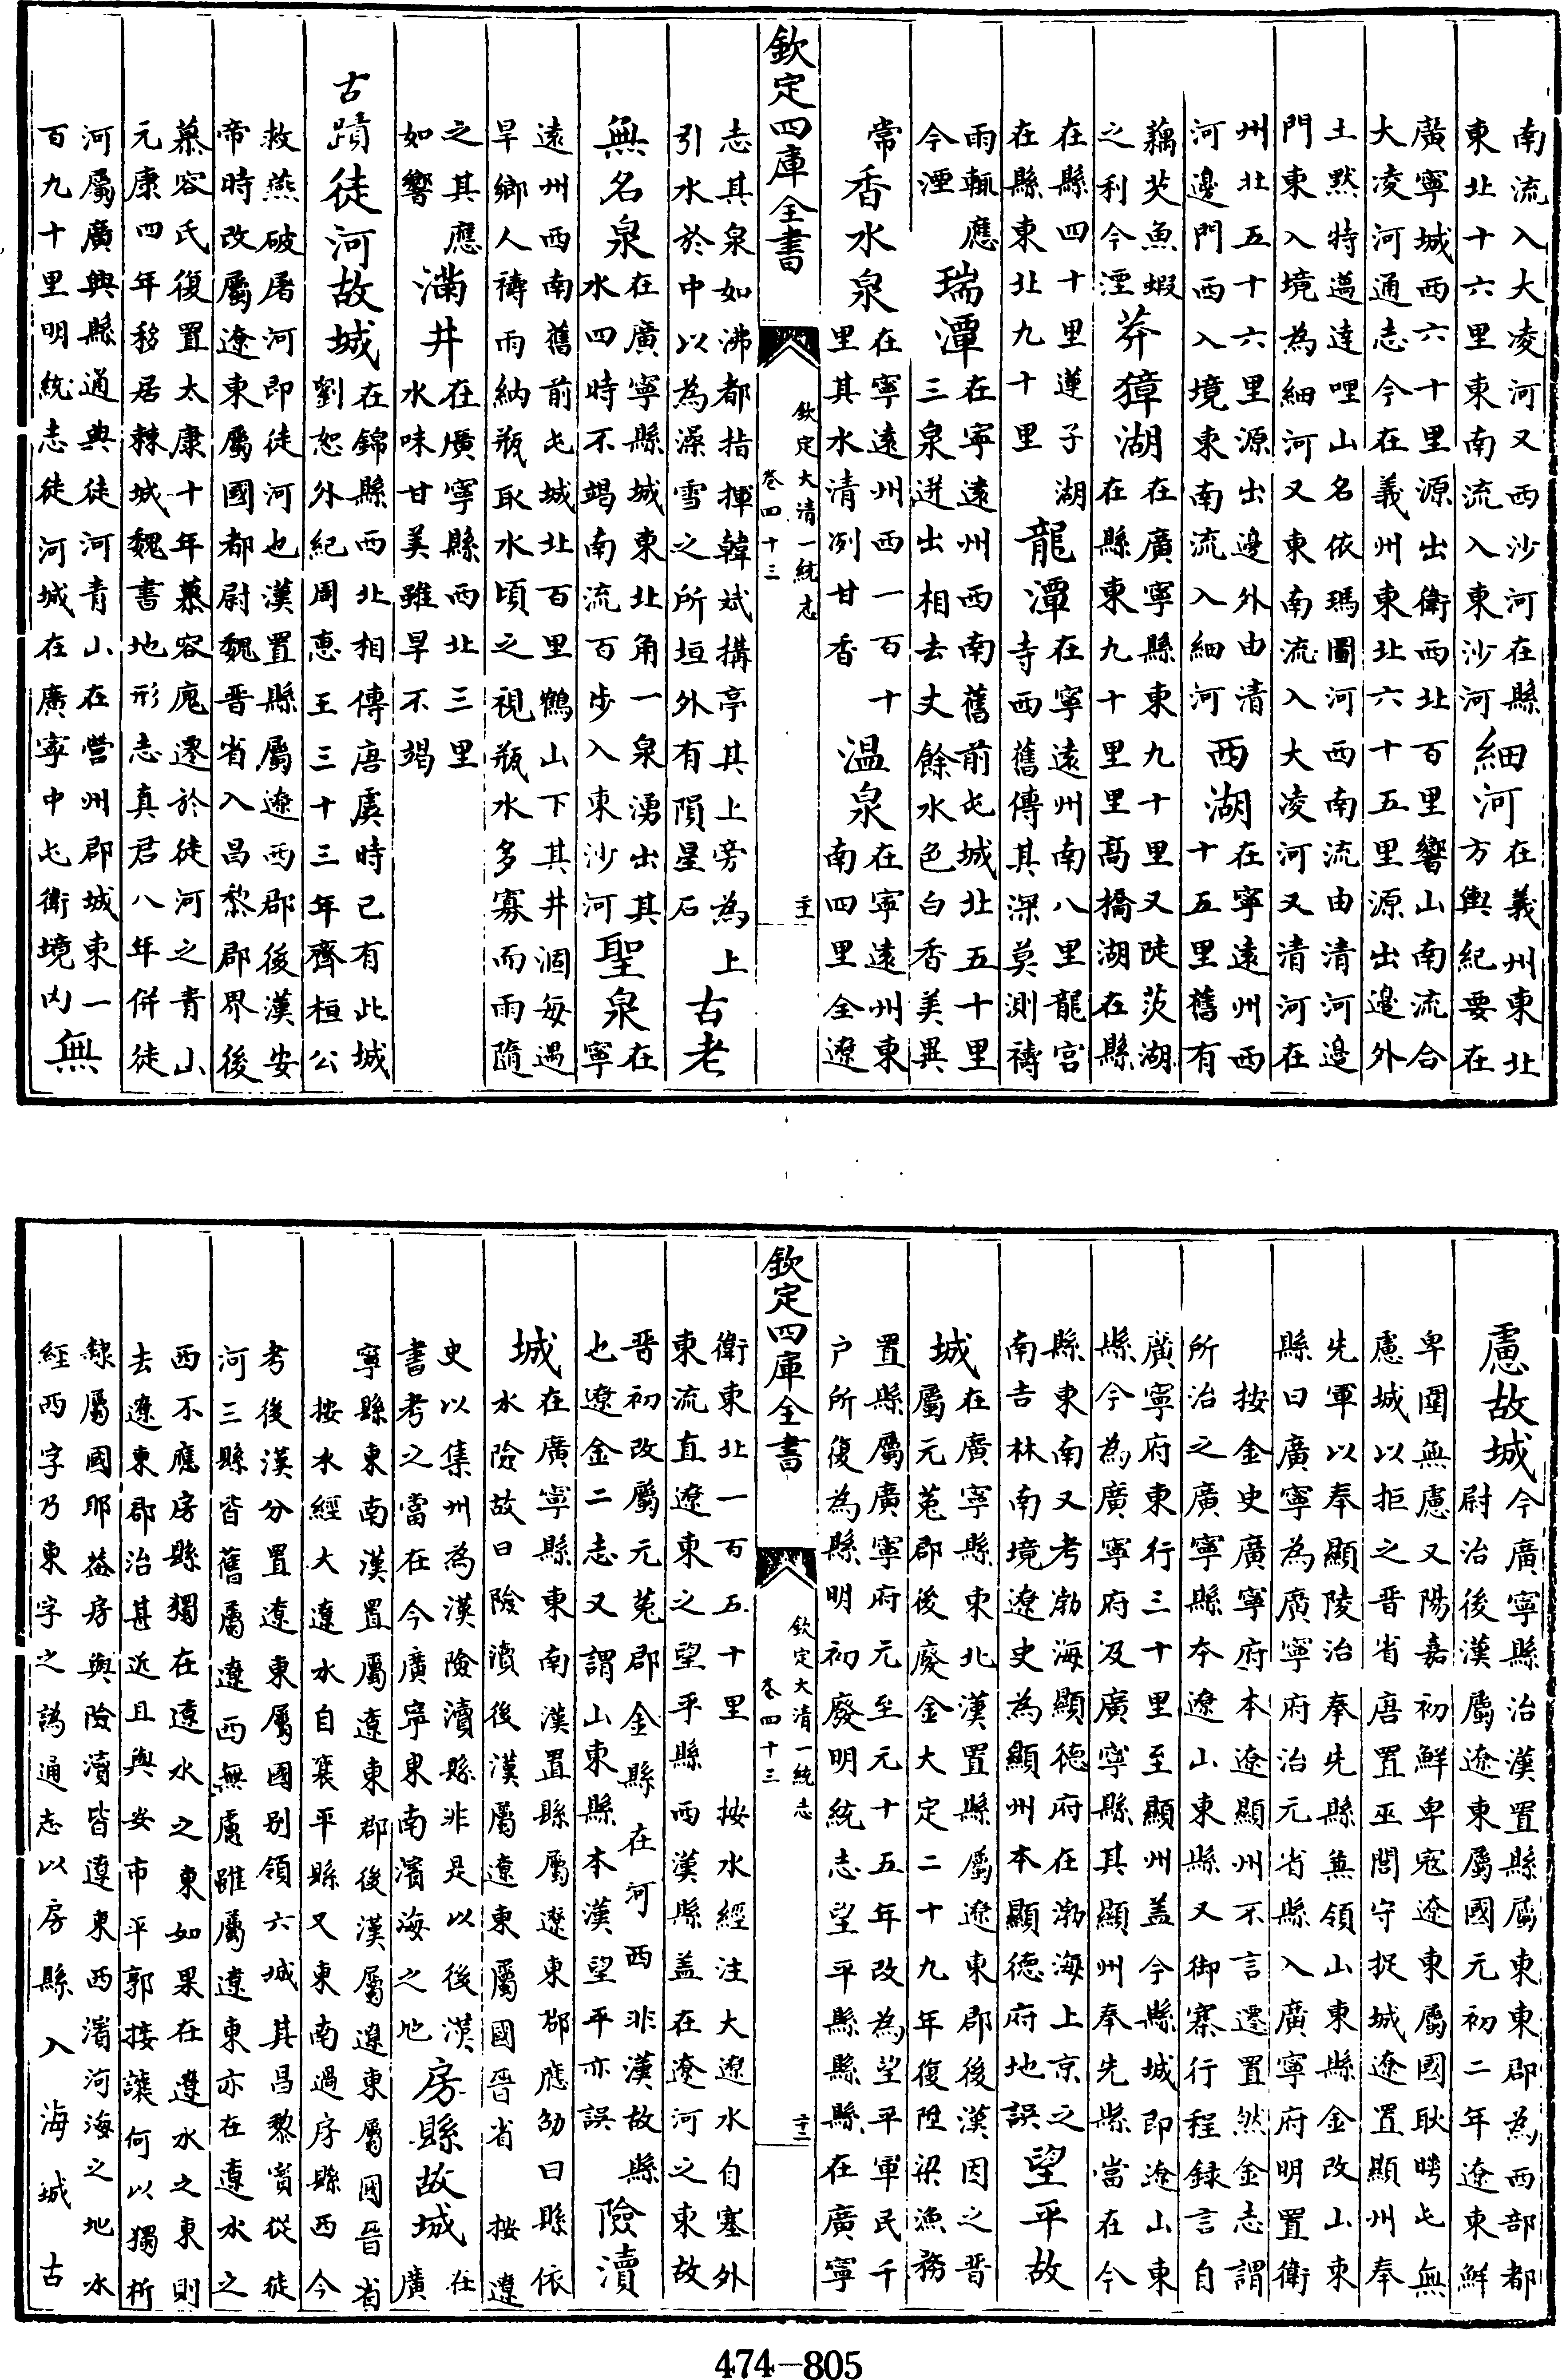 南流入大凌河又西沙河在縣
東北十六里東南流入東沙河
細河
在義州東北
方輿紀要在
廣寧城西六十里源出衛西北百里響山南流合
大凌河通志今在義州東北六十五里源出邊外
土默特邁達哩山名依瑪圖河西南流由清河邊
門東入境為細河又東南流入大凌河又清河在
州北五十六里源出邊外由清
河邊門西入境東南流入細河
西湖
在寧遠州西
十五里舊有
藕芡魚蝦
之利今湮
莽獐湖
在廣寧縣東九十里又陡茨湖
在縣東九十里里高橋湖在縣
在縣四十里蓮子湖
在縣東北九十里
龍潭
在寧遠州南八里龍宮
寺西舊傳其深莫測禱
雨輒應
今湮
瑞潭
在寧遠州西南舊前屯城北五十里
三泉迸出相去丈餘水色白香美異
常
香水泉
在寧遠州西一百十
里其水清冽甘香
温泉
在寧遠州東
南四里全遼
欽定四庫全書
欽定大清一統志
卷四十三
二十一
志其泉如沸都指揮韓斌搆亭其上旁為上
引水於中以為澡雪之所垣外有隕星石
古老
無名泉
在廣寧縣城東北角一泉湧出其
水四時不竭南流百步入東沙河
聖泉
在
寧
遠州西南舊前屯城北百里鶴山下其井涸每遇
旱鄉人禱雨納瓶取水頃之視瓶水多寡而雨隨
之其應
如響
滿井
在廣寧縣西北三里
水味甘美雖旱不竭
古蹟
徒河故城
在錦縣西北相傳唐虞時已有此城
劉恕外紀周惠王三十三年齊桓公
救燕破屠河即徒河也漢置縣屬遼西郡後漢安
帝時改屬遼東屬國都尉魏晉省入昌黎郡界後
慕容氏復置太康十年慕容廆遷於徒河之青山
元康四年移居棘城魏書地形志真君八年併徒
河屬廣興縣通典徒河青山在營州郡城東一
百九十里明統志徒河城在廣寧中屯衛境内
無
慮故城
今廣寧縣治漢置縣屬東東郡為西部都
尉治後漢屬遼東屬國元初二年遼東鮮
卑圍無慮又陽嘉初鮮卑寇遼東屬國耿曄屯無
慮城以拒之晉省唐置巫閭守捉城遼置顯州奉
先軍以奉顯陵治奉先縣兼領山東縣金改山東
縣曰廣寧為廣寧府治元省縣入廣寧府明置衛
所
按金史廣寧府本遼顯州不言遷置然金志謂
治之廣寧縣本遼山東縣又御寨行程録言自
廣寧府東行三十里至顯州盖今縣城即遼山東
縣今為廣寧府及廣寧縣其顯州奉先縣當在今
縣東南又考渤海顯德府在渤海上京之
南吉林南境遼史為顯州本顯德府地誤
望平故
城
在廣寧縣東北漢置縣屬遼東郡後漢因之晉
屬元菟郡後廢金大定二十九年復陞梁漁務
置縣屬廣寧府元至元十五年改為望平軍民千
户所復為縣明初廢明統志望平縣縣在廣寧
欽定四庫全書
欽定大清一統志
卷四十三
二十二
衛東北一百五十里
按水經注大遼水自塞外
東流直遼東之望平縣西漢縣盖在遼河之東故
晉初改屬元菟郡金縣在河西非漢故縣
也遼金二志又謂山東縣本漢望平亦誤
險瀆
城
在廣寧縣東南漢置縣屬遼東郡應劭曰縣依
水險故曰險瀆後漢屬遼東屬國晉省
按遼
史以集州為漢險瀆縣非是以後漢
書考之當在今廣寧東南濱海之地
房縣故城
在
廣
寧縣東南漢置屬遼東郡後漢屬遼東屬國晉省
按水經大遼水自襄平縣又東南過房縣西今
考後漢分置遼東屬國别領六城其昌黎賓從徒
河三縣皆舊屬遼西無慮雖屬遼東亦在遼水之
西不應房縣獨在遼水之東如果在遼水之東則
去遼東郡治甚近且與安市平郭接讓何以獨析
隸屬國耶盖房與險瀆皆遼東西濱河海之地水
經西字乃東字之譌通志以房縣入海城古
474-805